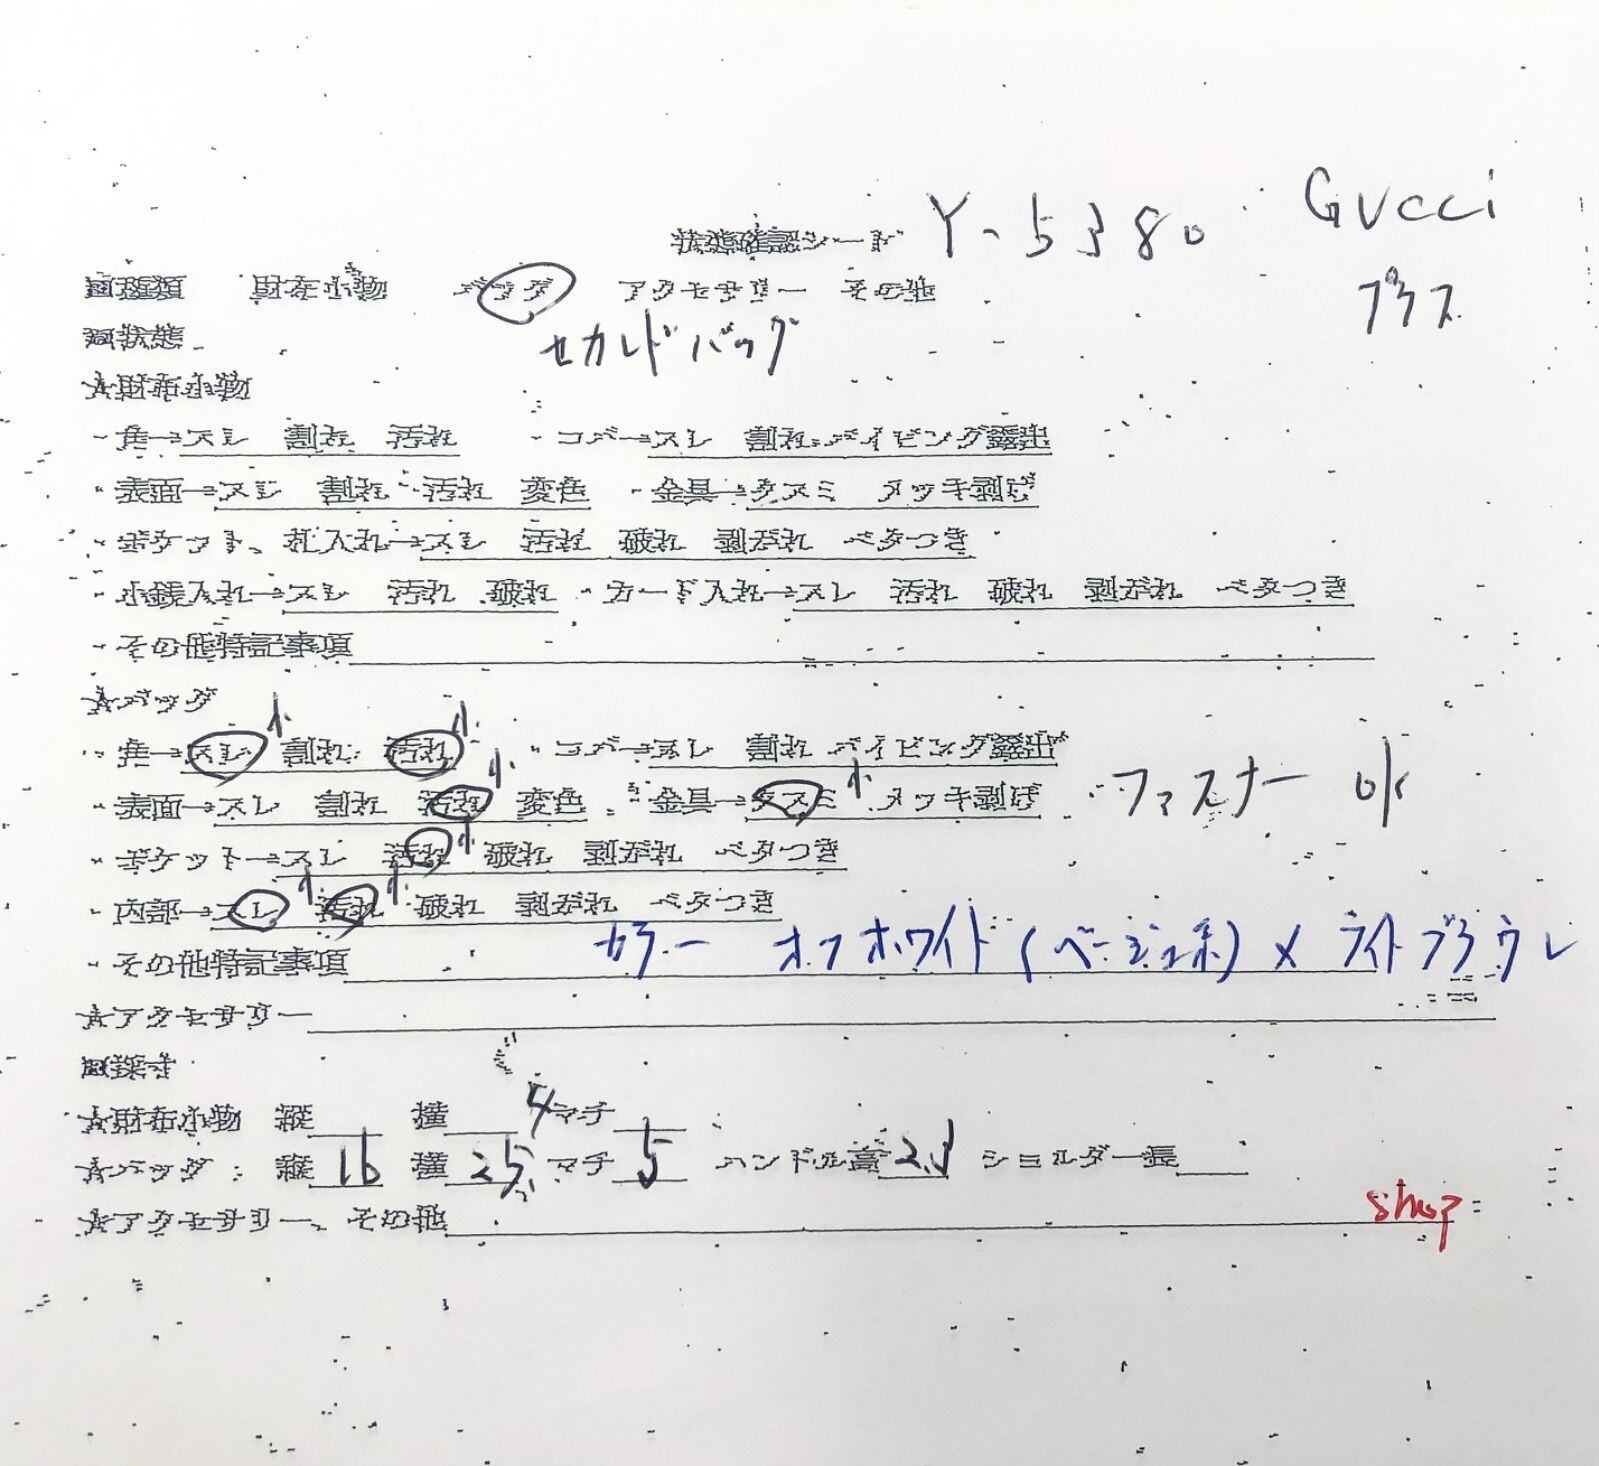 状態確認シート Y-5380 Gucci
■種類 財布小物 バッグ アクセサリー その他 プラス
■状態 セカンドバッグ
★財布小物
・角→スレ 割れ 汚れ ・コバ→スレ 割れ パイピング露出
・表面→スレ 割れ 汚れ 変色 ・金具→クスミ メッキ剥げ
・ポケット、札入れ→スレ 汚れ 破れ 剥がれ ベタつき
・小銭入れ→スレ 汚れ 破れ ・カード入れ→スレ 汚れ 破れ 剥がれ ベタつき
・その他特記事項
★バッグ
・角→スレ小 割れ 汚れ小 ・コバ→スレ 割れ パイピング露出
・表面→スレ 割れ 汚れ小 変色 ・金具→クスミ小 メッキ剥げ ・ファスナー ok
・ポケット→スレ 汚れ小 破れ 剥がれ ベタつき
・内部→スレ小 汚れ小 破れ 剥がれ ベタつき
・その他特記事項 カラー オフホワイト(ベージュ系)×ライトブラウン
★アクセサリー
■採寸
★財布小物 縦 横 マチ
★バッグ 縦16 横25 マチ5 ハンドル高 ショルダー長
★アクセサリー、その他 shop